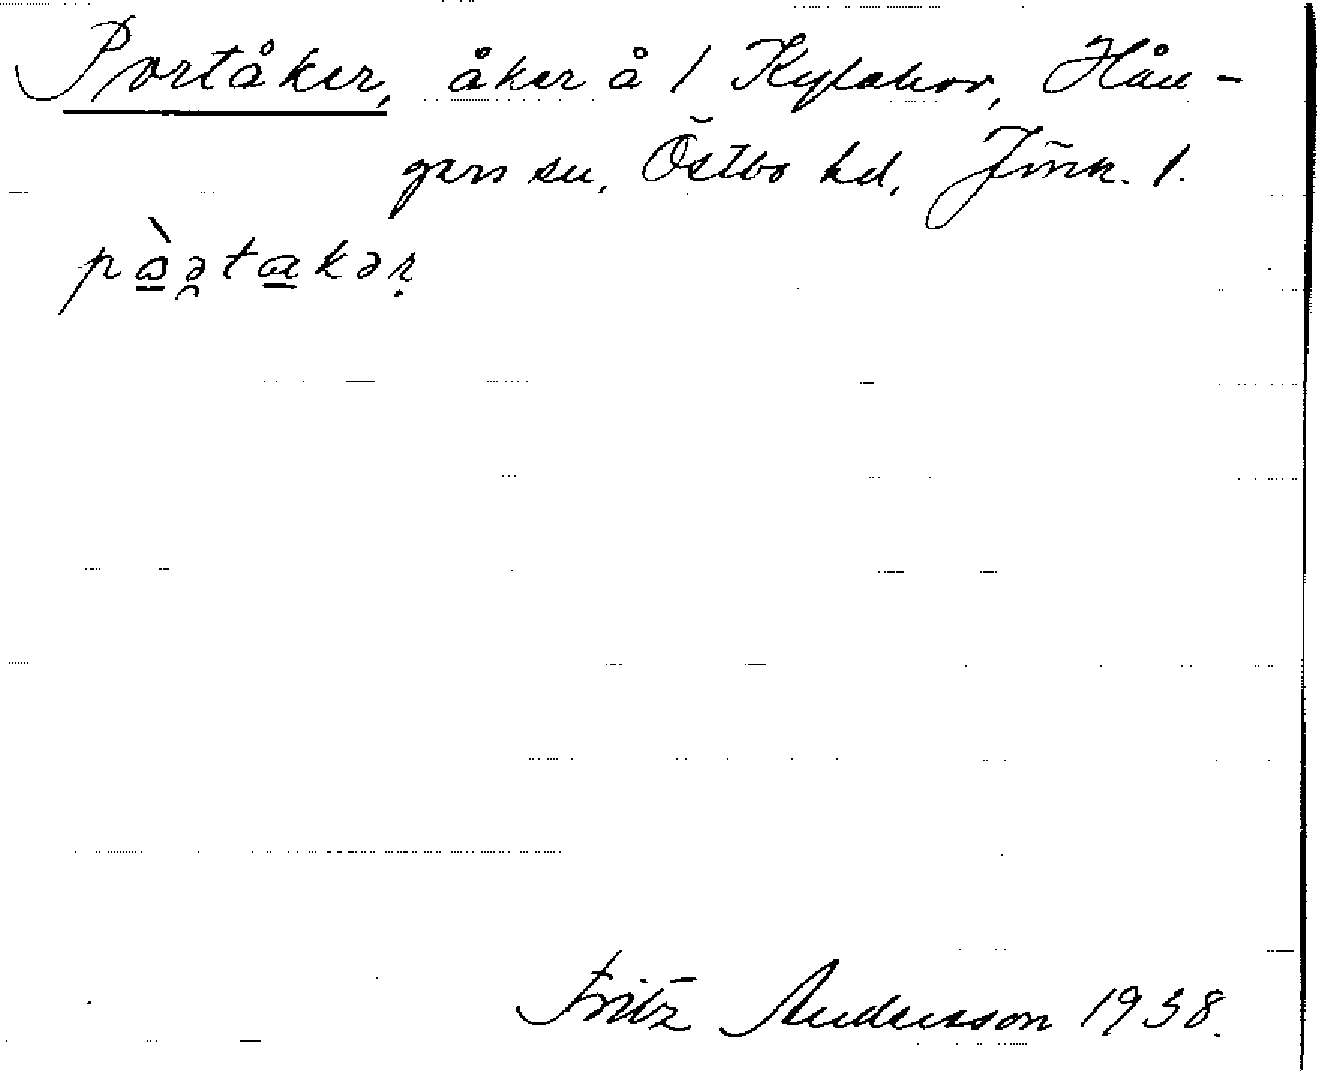 Portåker, åker å 1 Kylahov, Hån-
gers sn, Östbo hd, Jönk. l.
pàətakər
Fritz Andersson 1938.